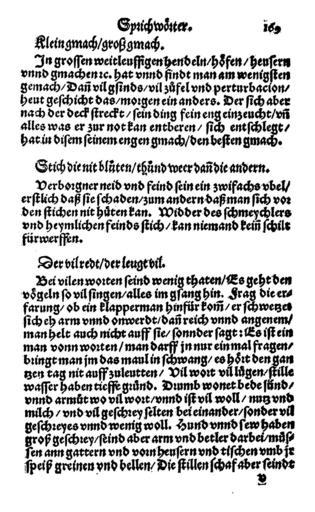 Sprichwörter. 169
Klein gmach/groß gmach.
In grossen weitleuffigen hendeln/höfen/heusern
vnnd gmachen ꝛc. hat vnnd findt man am wenigsten
gemach/Dañ vil gsinds/vil züfel vnd perturbacion/
heut geschicht das/morgen ein anders. Der sich aber
nach der deck streckt/sein ding fein eng einzeucht/vñ
alles was er zur not kan entberen/sich entschlegt/
hat in disem seinem engen gmach/den besten gmach.
Stich die nit blüten/thünd weer dañ die andern.
Verborgner neid vnd feind sein ein zwifachs vbel/
erstlich daß sie schaden/zum andern daß man sich vor
den stichen nit hüten kan. Widder des schmeychlers
vnd heymlichen feinds stich/kan niemand keiñ schilt
fürwerffen.
Der vil redt/der leugt vil.
Bei vilen worten seind wenig thaten/Es geht den
vögeln so vil singen/alles im gsang hin. Frag die er-
farung/ob ein klapperman hinfür kom̃/er schwetzet
sich eh arm vnnd onwerdt/dañ reich vnnd angenem/
man helt auch nicht auff sie/sonder sagt: Es ist ein
man vonn worten/man darff jn nur ein mal fragen/
bringt man jm das maul in schwang/es hört den gan
tzen tag nit auff zuleutten/Vil wort vil lügen/stille
wasser haben tieffe gründ. Drumb wonet bede sünd/
vnnd armůt wo vil wort/vnnd ist vil woll/nutz vnd
milch/vnd vil geschrey selten bei einander/sonder vil
geschreyes vnnd wenig woll. Hund vnnd sew haben
groß geschrey/seind aber arm vnd betler darbei/müs-
sen ann gattern vnd vorn heusern vnd tischen vmb jr
speiß greinen vnd bellen/Die stillen schaf aber seindt